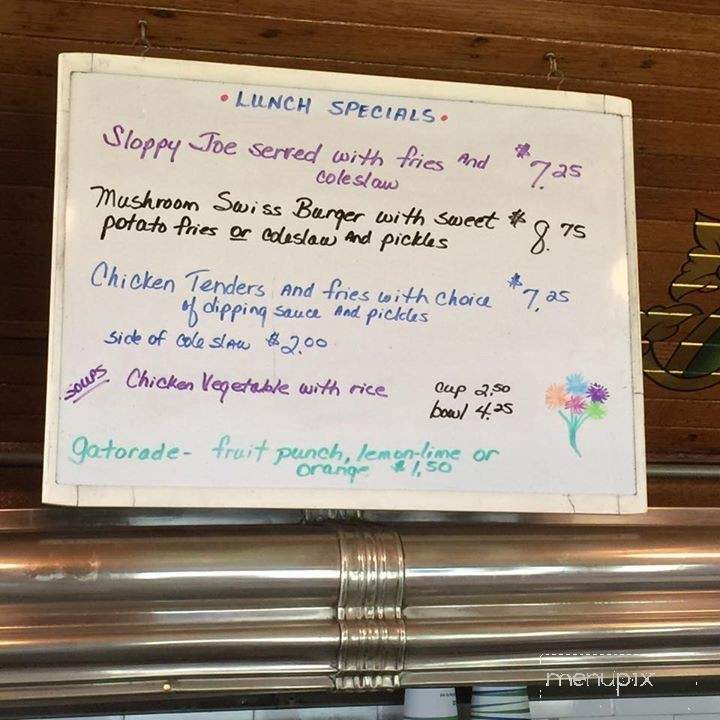 • LUNCH SPECIALS •
Sloppy Joe served with fries And $7.25
coleslaw
Mushroom Swiss Burger with sweet $8.75
potato fries or coleslaw And pickles
Chicken Tenders And fries with choice $7.25
of dipping sauce And pickles
side of coleslaw $2.00
soups Chicken Vegetable with rice cup 2.50
bowl 4.25
gatorade - fruit punch, lemon-lime or
orange $1.50
menupix